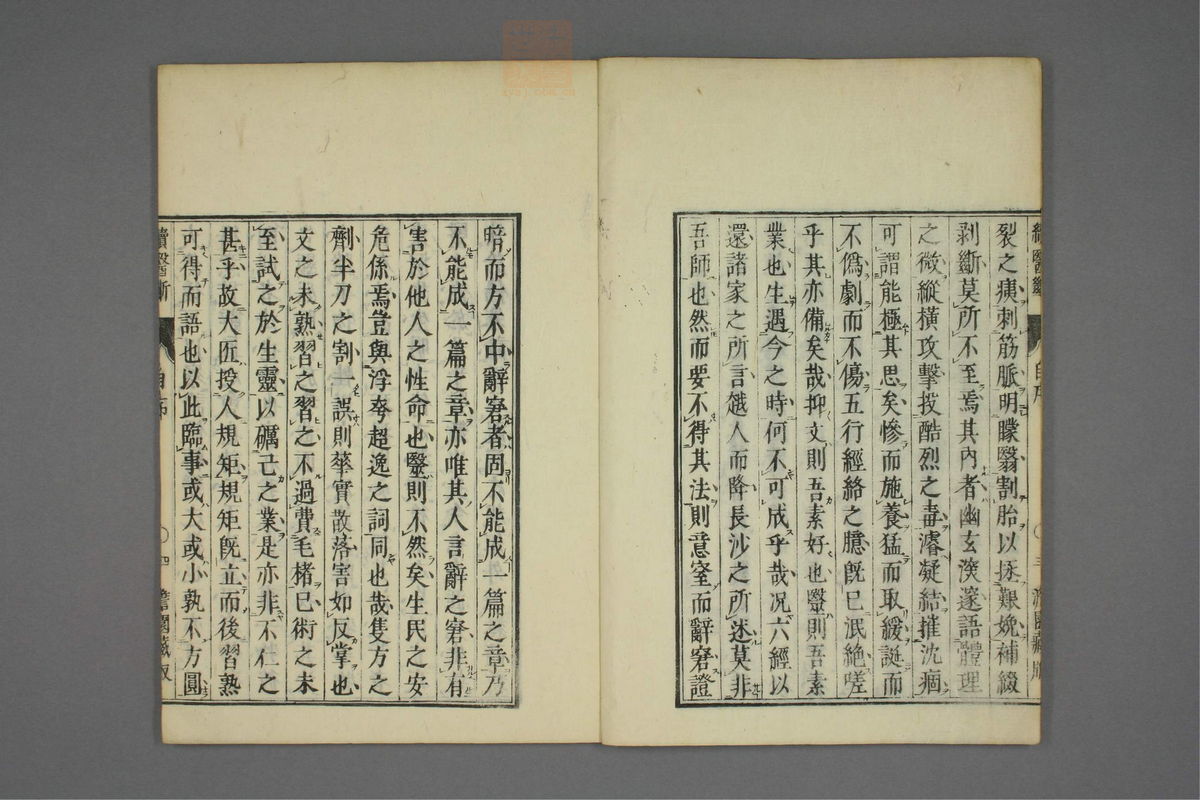 續醫斷 自序 三
裂之痍刺筋脈明朦翳割胎以拯艱娩補綴
剥斷莫所不至焉其內者幽玄深邃語體理
之微縱橫攻擊投酷烈之毒濬凝結摧沈痼
可謂能極其思矣慘而施養猛而取緩誕而
不僞劇而不傷五行經絡之臆旣已泯絶嗟
乎其亦備矣哉抑文則吾素好也毉則吾素
業也生遇今之時何不可成乎哉况六經以
還諸家之所言鑯人而降長沙之所述莫非
吾師也然而要不得其法則意窒而辭窘證
暗而方不中辭窘者固不能成一篇之章乃
不能成一篇之章亦唯其人言辭之窘非有
害於他人之性命也毉則不然矣生民之安
危係焉豈與浮夸超逸之詞同也哉隻方之
劑半刀之割一誤則華實散落害如反掌也
文之未熟習之習之不過費毛楮已術之未
至試之於生靈以礪己之業是亦非不仁之
甚乎故大匠授人規矩規矩旣立而後習熟
可得而語也以此臨事或大或小孰不方圓
續毉斷 自序 四